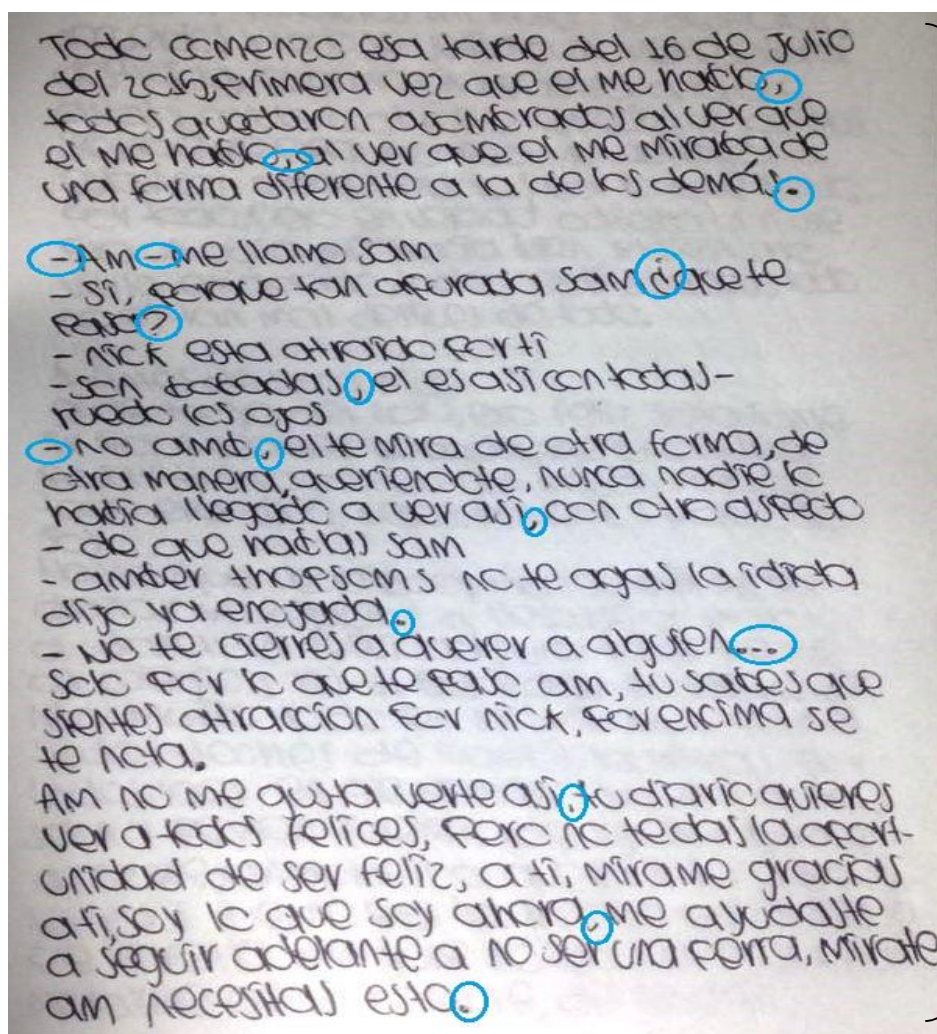 Todo comenzo esa tarde del 16 de Julio
del 2015, primera vez que el me hablo,
todos quedaron asombrados al ver que
el me hablo, al ver que el me miraba de
una forma diferente a la de los demás.
-Am-me llamo sam
- si, porque tan apurada sam ¿que te
paso?
- nick esta atraido por ti
- son bobadas, el es asi con todas-
ruedo los ojos
- no amb, el te mira de otra forma, de
otra manera, queriendote, nunca nadie lo
habia llegado a ver asi, con otro aspecto
- de que hablas sam
- amber thopsoms no te agas la idiota
dijo ya enojada.
- No te cierres a querer a alguien...
Solo por lo que te paso am, tu sabes que
sientes atraccion por nick, por encima se
te nota.
Am no me gusta verte asi, tu diario quieres
ver a todos felices, pero no te das la oport-
unidad de ser feliz, a ti, mirame gracias
a ti, soy lo que soy ahora, me ayudaste
a seguir adelante a no ser una perra, mirate
am necesitas esto.